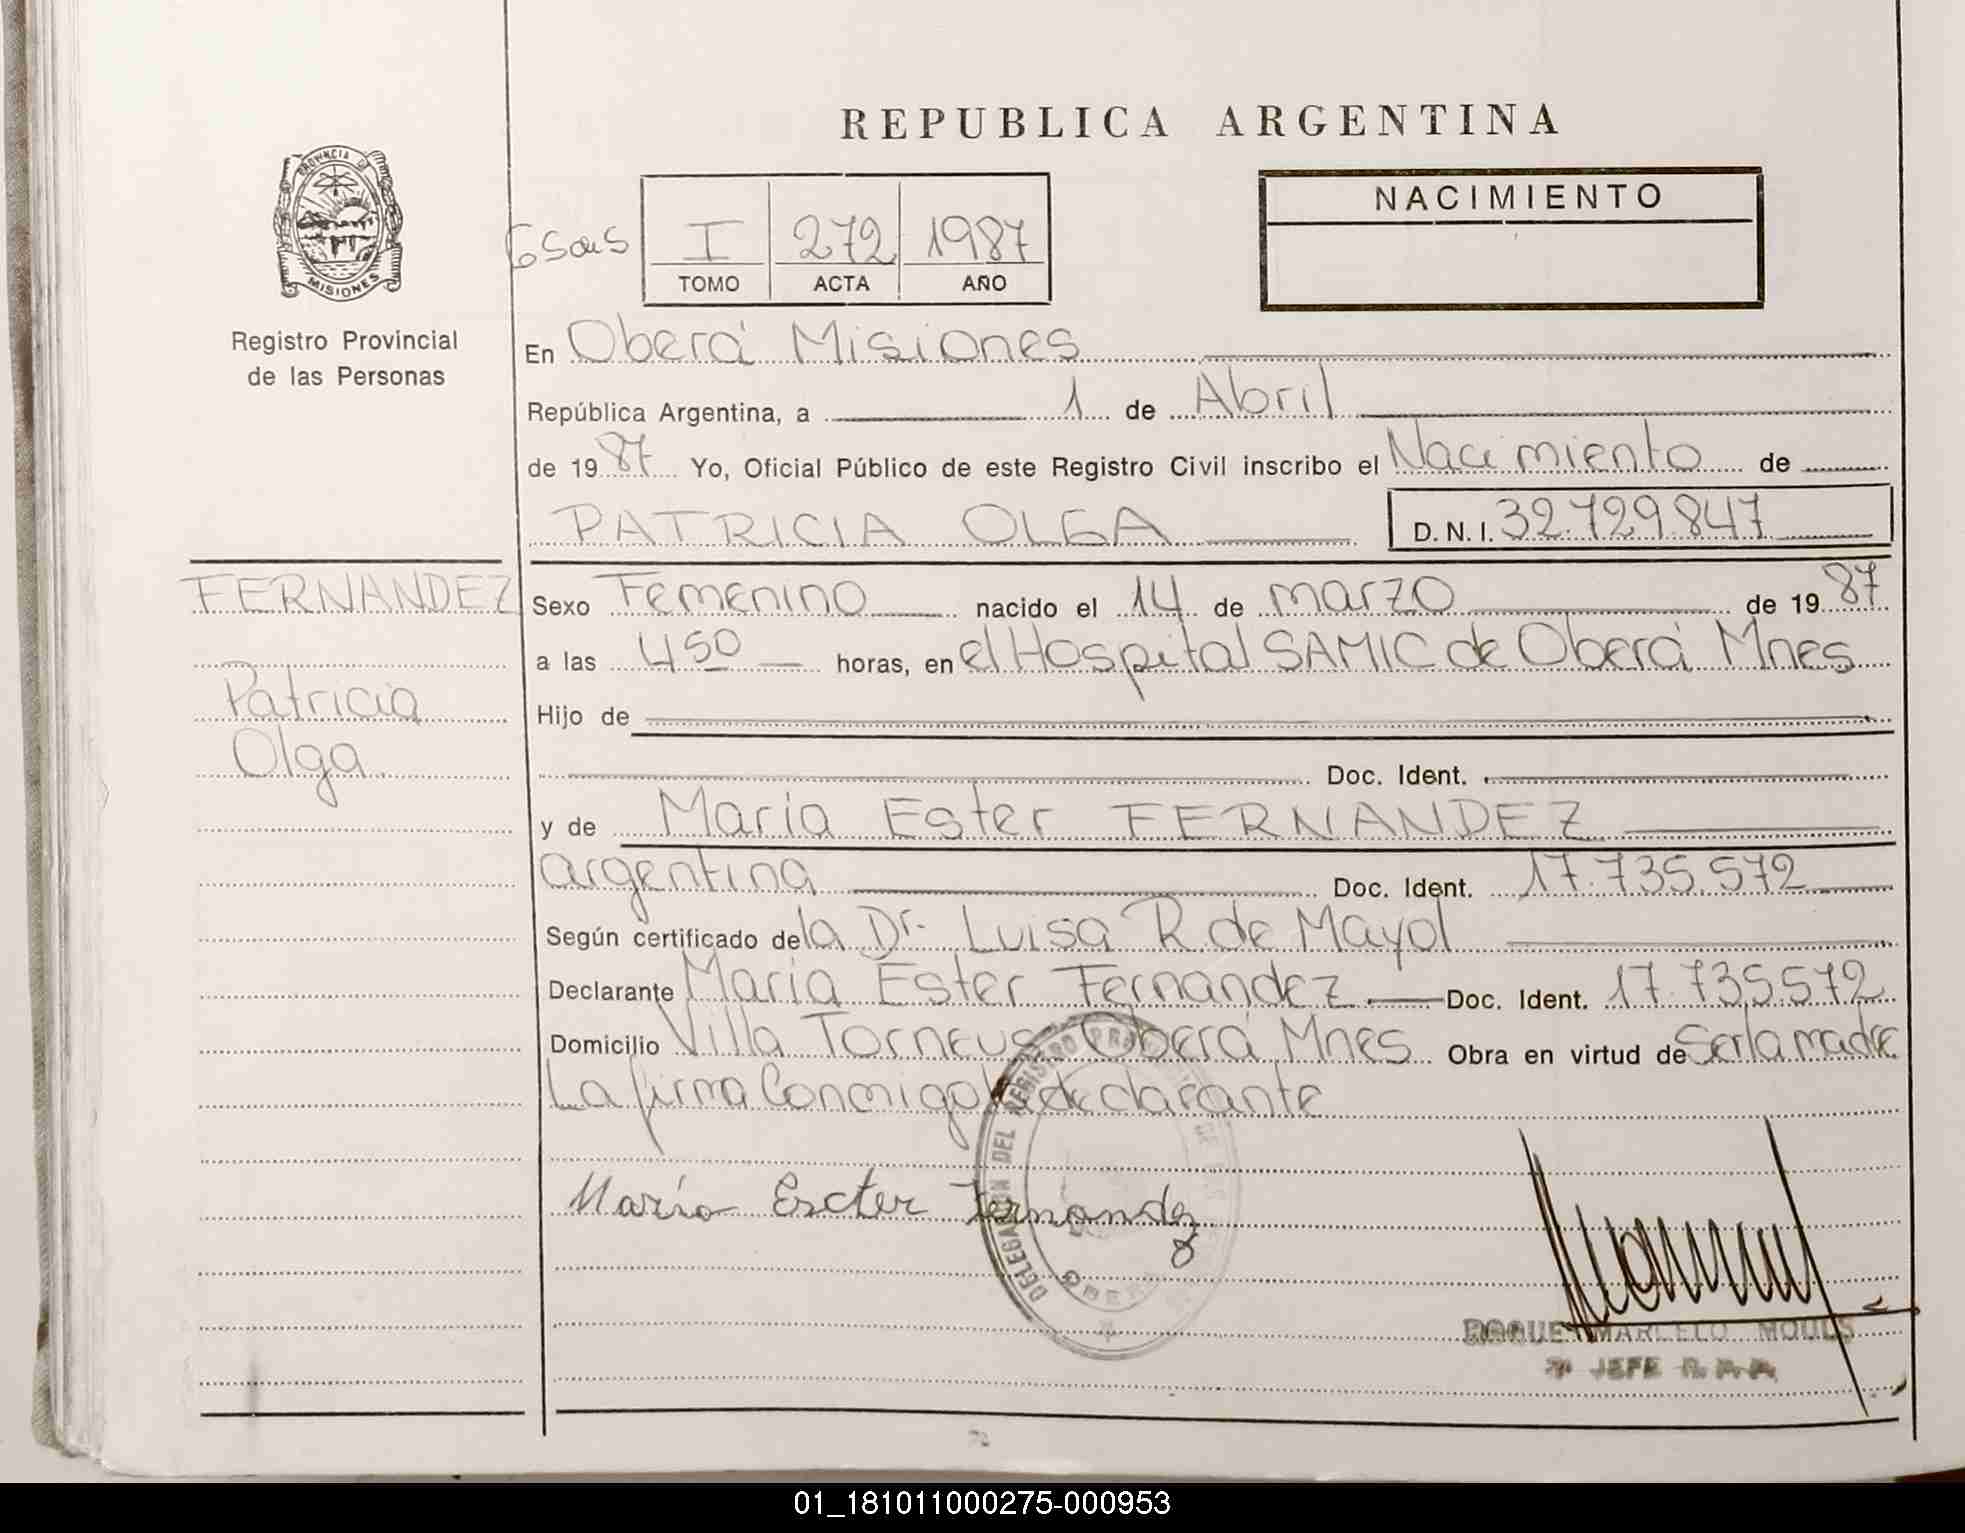 REPUBLICA ARGENTINA
PROVINCIA DE
MISIONES
Registro Provincial
de las Personas
NACIMIENTO
I 272 1987
TOMO ACTA AÑO
En Oberá Misiones
República Argentina, a 1 de Abril
de 1987 Yo, Oficial Público de este Registro Civil inscribo el Nacimiento de
PATRICIA OLGA D.N.I. 32.729.847
FERNANDEZ
Patricia
Olga
Sexo Femenino nacido el 14 de marzo de 1987
a las 450 horas, en el Hospital SAMIC de Oberá Mnes
Hijo de
Doc. Ident.
y de Maria Ester FERNANDEZ
argentina Doc. Ident. 17.735.572
Según certificado de la Dr. Luisa R de Mayol
Declarante Maria Ester Fernandez Doc. Ident. 17.735.572
Domicilio Villa Torneus Oberá Mnes Obra en virtud de Ser la madre
La firma Conmigo la declarante
Maria Escter Fernandez
DELEGACION DEL REGISTRO
ROQUE MARCELO MOULS
JEFE
01_181011000275-000953